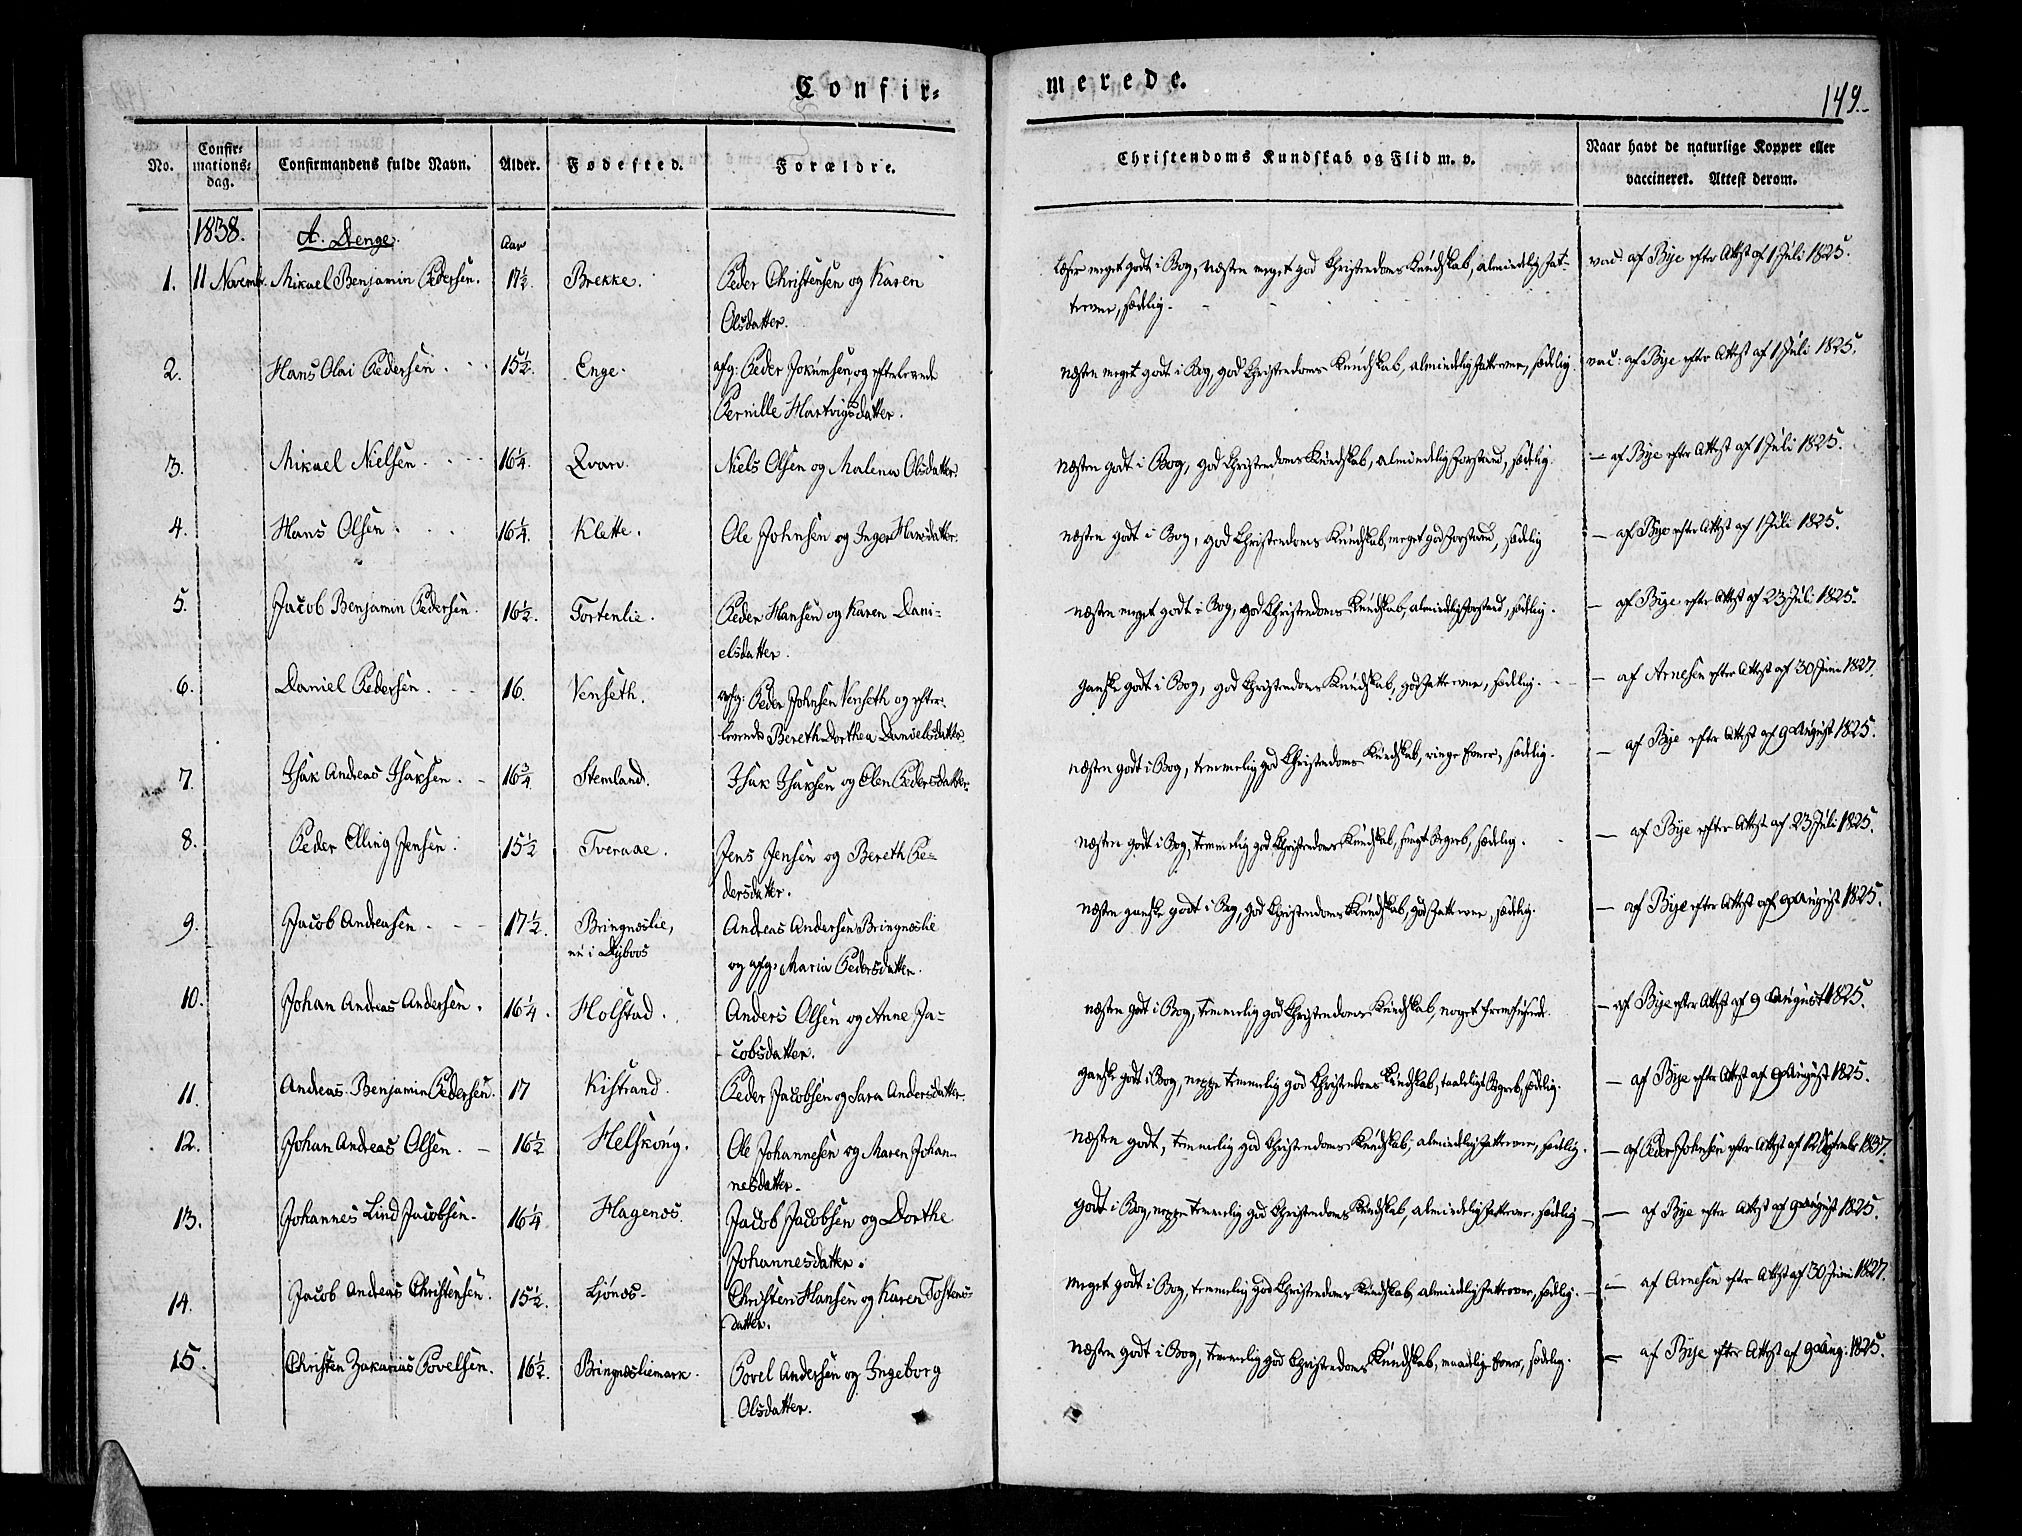 Confir=
merede.
149.
No.
Confir=
mations=
dag.
Confirmandens fulde Navn.
Alder.
Fødested.
Forældre.
Christendoms Kundskab og Flid m. v.
Naar havt de naturlige Kopper eller
vaccineret. Attest derom.
1838. A. Drenge. Aar
1. 11 Novembr. Mikael Benjamin Pedersen. 17½. Brekke. Peder Christensen og Karen
Olsdatter.
Læser meget godt i Bog, næsten meget god Christendoms Kundskab, almindelig Fat-
teevne, sædelig. vac: af Bye efter Attest af 1 Juli 1825.
2. Hans Olai Pedersen. 15½. Enge. afg: Peder Jokumsen, og efterlevende
Pernille Hartvigsdatter.
næsten meget godt i Bog, god Christendoms Kundskab, almindelig Fatteevne, sædelig vac: af Bye efter Attest af 1 Juli 1825.
3. Mikael Nielsen. 16¼. Qvarv. Niels Olsen og Malena Olsdatter.
næsten godt i Bog, god Christendoms Kundskab, almindelig Forstand, sædelig. — af Bye efter Attest af 1 Juli 1825.
4. Hans Olsen. 16¼. Klette. Ole Johnsen og Inger Hansdatter.
næsten godt i Bog, god Christendoms Kundskab, meget god Forstand, sædelig — af Bye efter Attest af 1 Juli 1825.
5. Jacob Benjamin Pedersen. 16½. Tortenlie. Peder Hansen og Karen Dani-
elsdatter.
næsten meget godt i Bog, god Christendoms Kundskab, almindelig Forstand, sædelig. — af Bye efter Attest af 23 Juli 1825.
6. Daniel Pedersen. 16. Venseth. afg: Peder Johnsen Venseth og efter-
levende Bereth Dorthea Danielsdatter.
ganske godt i Bog, god Christendoms Kundskab, god Fatteevne, sædelig. — af Arnesen efter Attest af 30 Juni 1827.
7. Isak Andreas Isaksen. 16¾. Stemland. Isak Isaksen og Elen Pedersdatter.
næsten godt i Bog, temmelig god Christendoms Kundskab, ringe Evner, sædelig. — af Bye efter Attest af 9 August 1825.
8. Peder Elling Jensen. 15½ Tveraae. Jens Jensen og Bereth Pe-
dersdatter.
næsten godt i Bog, temmelig god Christendoms Kundskab, Begreb, sædelig. — af Bye efter Attest af 23 Juli 1825.
9. Jacob Andreasen. 17½. Bringneslie,
nu i Dybvos Andreas Andersen Bringneslie
og afg: Maria Pedersdatter.
næsten ganske godt i Bog, god Christendoms Kundskab, god Fatteevne, sædelig. — af Bye efter Attest af 9 August 1825.
10. Johan Andreas Andersen. 16¼. Holstad. Anders Olsen og Anne Ja-
cobsdatter.
næsten godt i Bog, temmelig god Christendoms Kundskab, noget fremfusende. — af Bye efter Attest af 9 August 1825.
11. Andreas Benjamin Pedersen. 17 Kistrand. Peder Jacobsen og Sara Andersdatter.
ganske godt i Bog, neppe temmelig god Christendoms Kundskab, taaleligt Begreb, sædelig. — af Bye efter Attest af 9 August 1825.
12. Johan Andreas Olsen. 16½ Helskong. Ole Johannesen og Maren Johan-
nesdatter.
næsten godt, temmelig god Christendoms Kundskab, almindelig Fatteevne, sædelig. — af Peder Johnsen efter Attest af 12 Septembr 1837.
13. Johannes Lind Jacobsen. 16¼ Hagenæs. Jacob Jacobsen og Dorthe
Johannesdatter.
godt i Bog, neppe temmelig god Christendoms Kundskab, almindelig Fatteevne, sædelig — af Bye efter Attest af 9 August 1825.
14. Jacob Andreas Christensen. 15½. Ljønæs. Christen Hansen og Karen Tostens-
datter.
meget godt i Bog, temmelig god Christendoms Kundskab, almindelig Fatteevne, sædelig. — af Arnesen efter Attest af 30 Juni 1827.
15. Christen Zakarias Povelsen. 16½. Bringnesliemark. Povel Andersen og Ingeborg
Olsdatter.
næsten godt i Bog, temmelig god Christendoms Kundskab, maadelige Evner, sædelig. — af Bye efter Attest af 9 Aug: 1825.